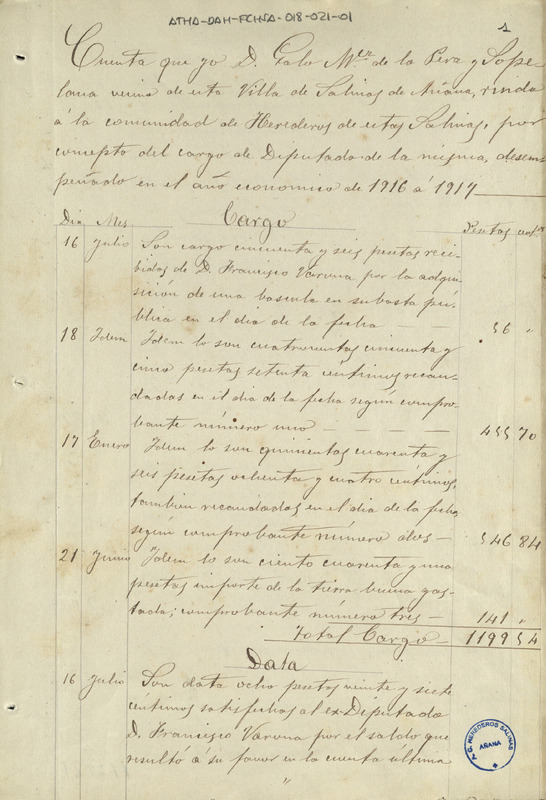 ATHA-DAH-FCHSA-018-021-01
1
Cuenta que yo D. Galo Mez de la Pera y Sope-
lana vecino de esta Villa de Salinas de Añana, rinda
á la comunidad de Herederos de estas Salinas, por
concepto del cargo de Diputado de la misma, desem-
peñado en el año economico de 1916 á 1917
Cargo
Dia Mes Pesetas cents
16 Julio Son cargo cincuenta y seis pesetas reci-
bidas de D. Francisco Varona por la adqui-
sición de una bascula en subasta pú-
blica en el dia de la fecha - - 56 "
18 Idem Idem lo son cuatrocientas cincuenta y
cinco pesetas setenta centimos recau-
dadas en el dia de la fecha según compro-
bante número uno - - - - 455 70
17 Enero Idem lo son quinientas cuarenta y
seis pesetas ochenta y cuatro céntimos,
tambien recaudadas en el dia de la fecha,
según comprobante número dos - 546 84
21 Junio Idem lo son ciento cuarenta y una
pesetas importe de la tierra buena gas-
tada; comprobante número tres - 141 "
Total Cargo - 1199 54
Data
16 Julio Son data ocho pesetas veinte y siete
céntimos satisfechas al ex-Diputado
D. Francisco Varona por el saldo que
resultó á su favor en la cuenta última
"
A.G. HEREDEROS SALINAS
AÑANA